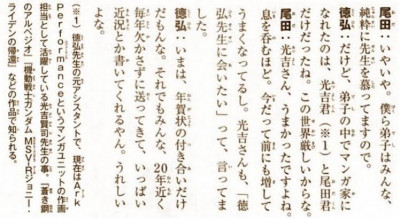 尾田：いやいや。僕ら弟子はみんな、
純粋に先生を慕ってますので。
徳弘：だけど、弟子の中でマンガ家に
なったのは、光吉君（※1）と尾田君
だけだね。この世界厳しいからな。
尾田：光吉さん、うまかったですよね。
息を呑むほど。今だって前にも増して
うまくなってるし。光吉さんも、「徳
弘先生に会いたい」って、言ってま
した。
徳弘：いまは、年賀状の付き合いだけ
だもんな。それでもみんな、20年近く
毎年欠かさずに送ってきて、いっぱい
近況とか書いてくれるやん。うれしい
よな。
（※1）徳弘先生の元アシスタントで、現在はArk
Performanceというマンガユニットの作画
担当として活躍している光吉賢司先生の事。『蒼き鋼
のアルペジオ』『機動戦士ガンダムMSV-Rジョニー・
ライデンの帰還』などの作品で知られる。